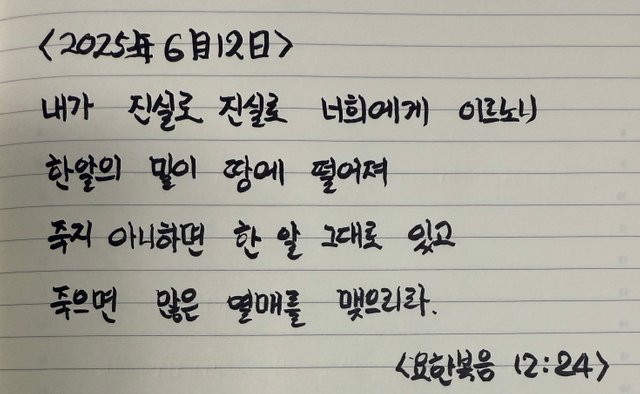 <2025年 6月12日>
내가 진실로 진실로 너희에게 이르노니
한알의 밀이 땅에 떨어져
죽지 아니하면 한 알 그대로 있고
죽으면 많은 열매를 맺으리라.
<요한복음 12:24>